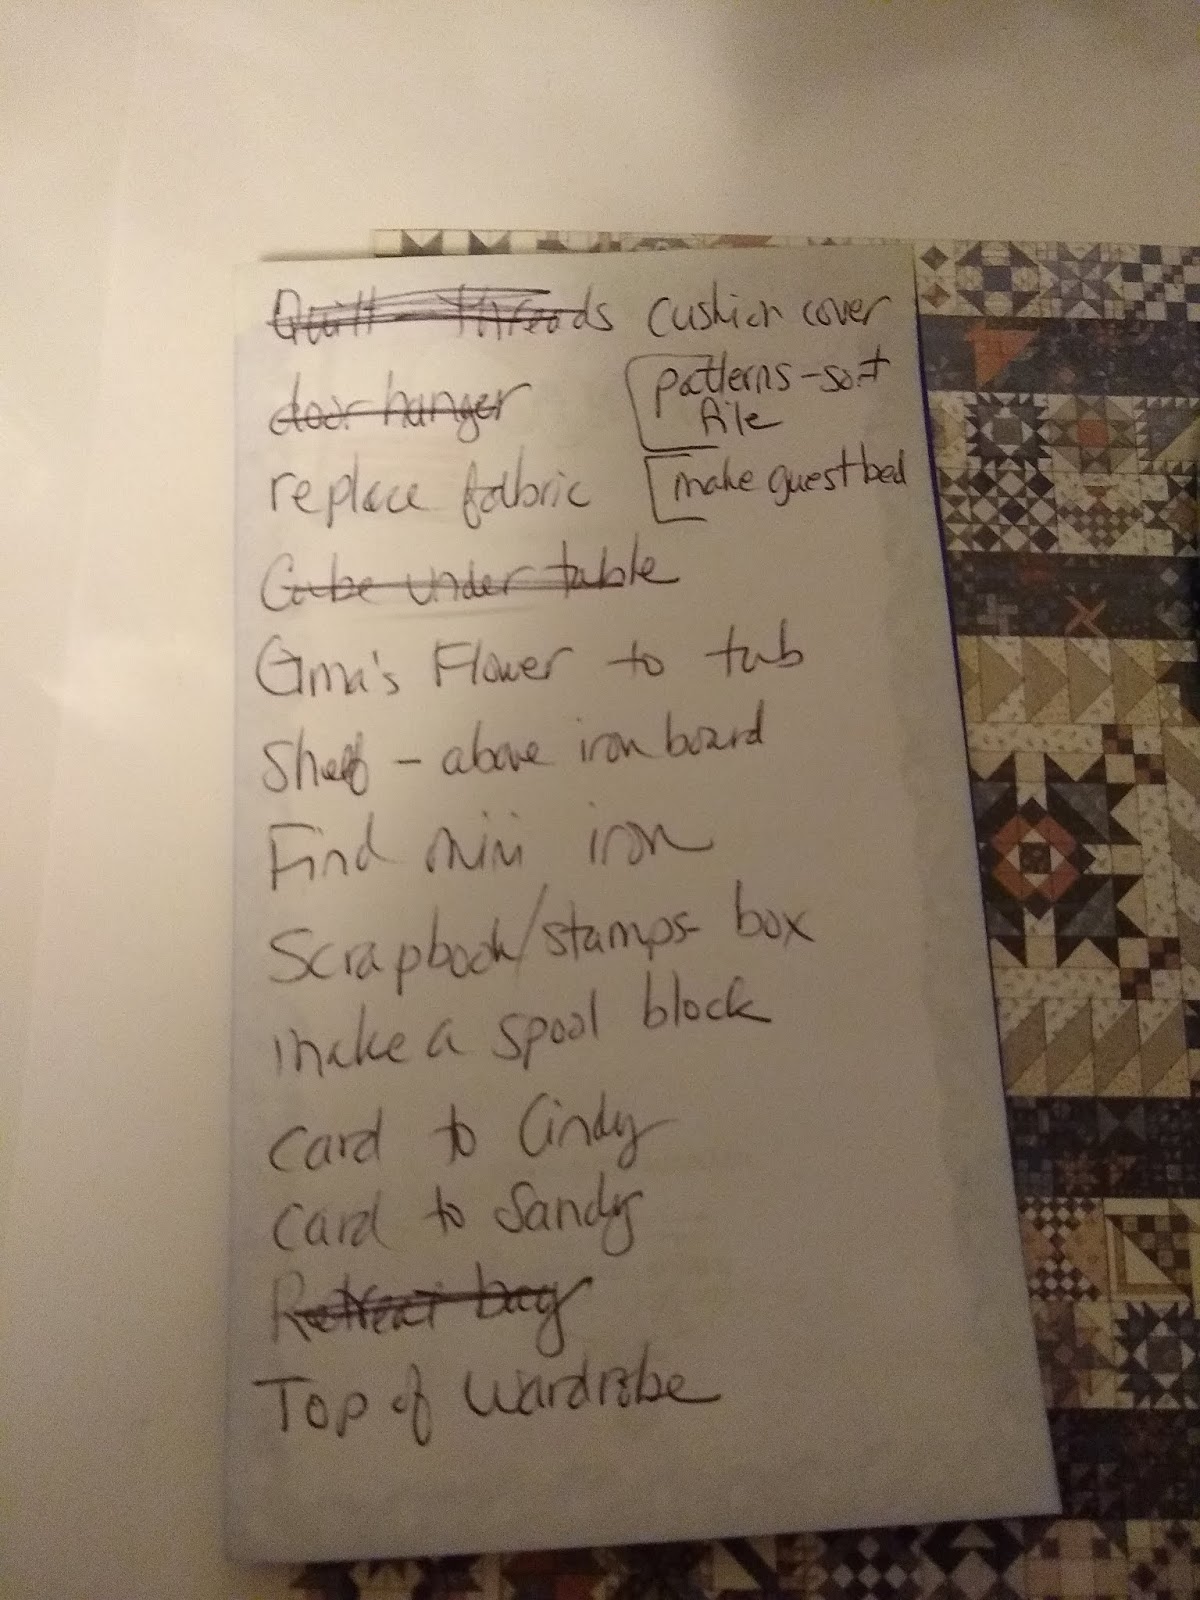 Quilt - threads cushion cover
door hanger
patterns - sort
file
replace fabric
make guest bed
Cube under table
Gma's Flower to tub
Shelf - above iron board
Find mini iron
Scrapbook/stamps - box
make a spool block
Card to Cindy
Card to Sandy
Retreat bag
Top of wardrobe